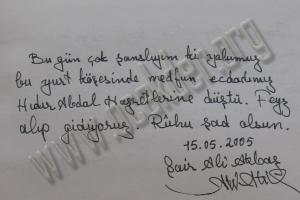 Bu gün çok şanslıyım ki yolumuz
bu yurt köşesinde medfun ecdadımız
Hıdır Abdal Hazretlerine düştü. Feyz
alıp gidiyoruz. Rûhu şad olsun.
15.05.2005
Şair Ali Akbaş